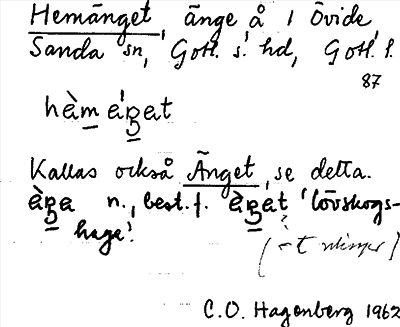 Hemänget, änge å 1 Övide,
Sanda sn, Gotl. s. hd, Gotl. l.
87
hàm áŋat
Kallas också Änget, se detta.
àŋa n., best. f. àŋat 'lövskogs-
hage'.
C.O. Hagenberg 1962